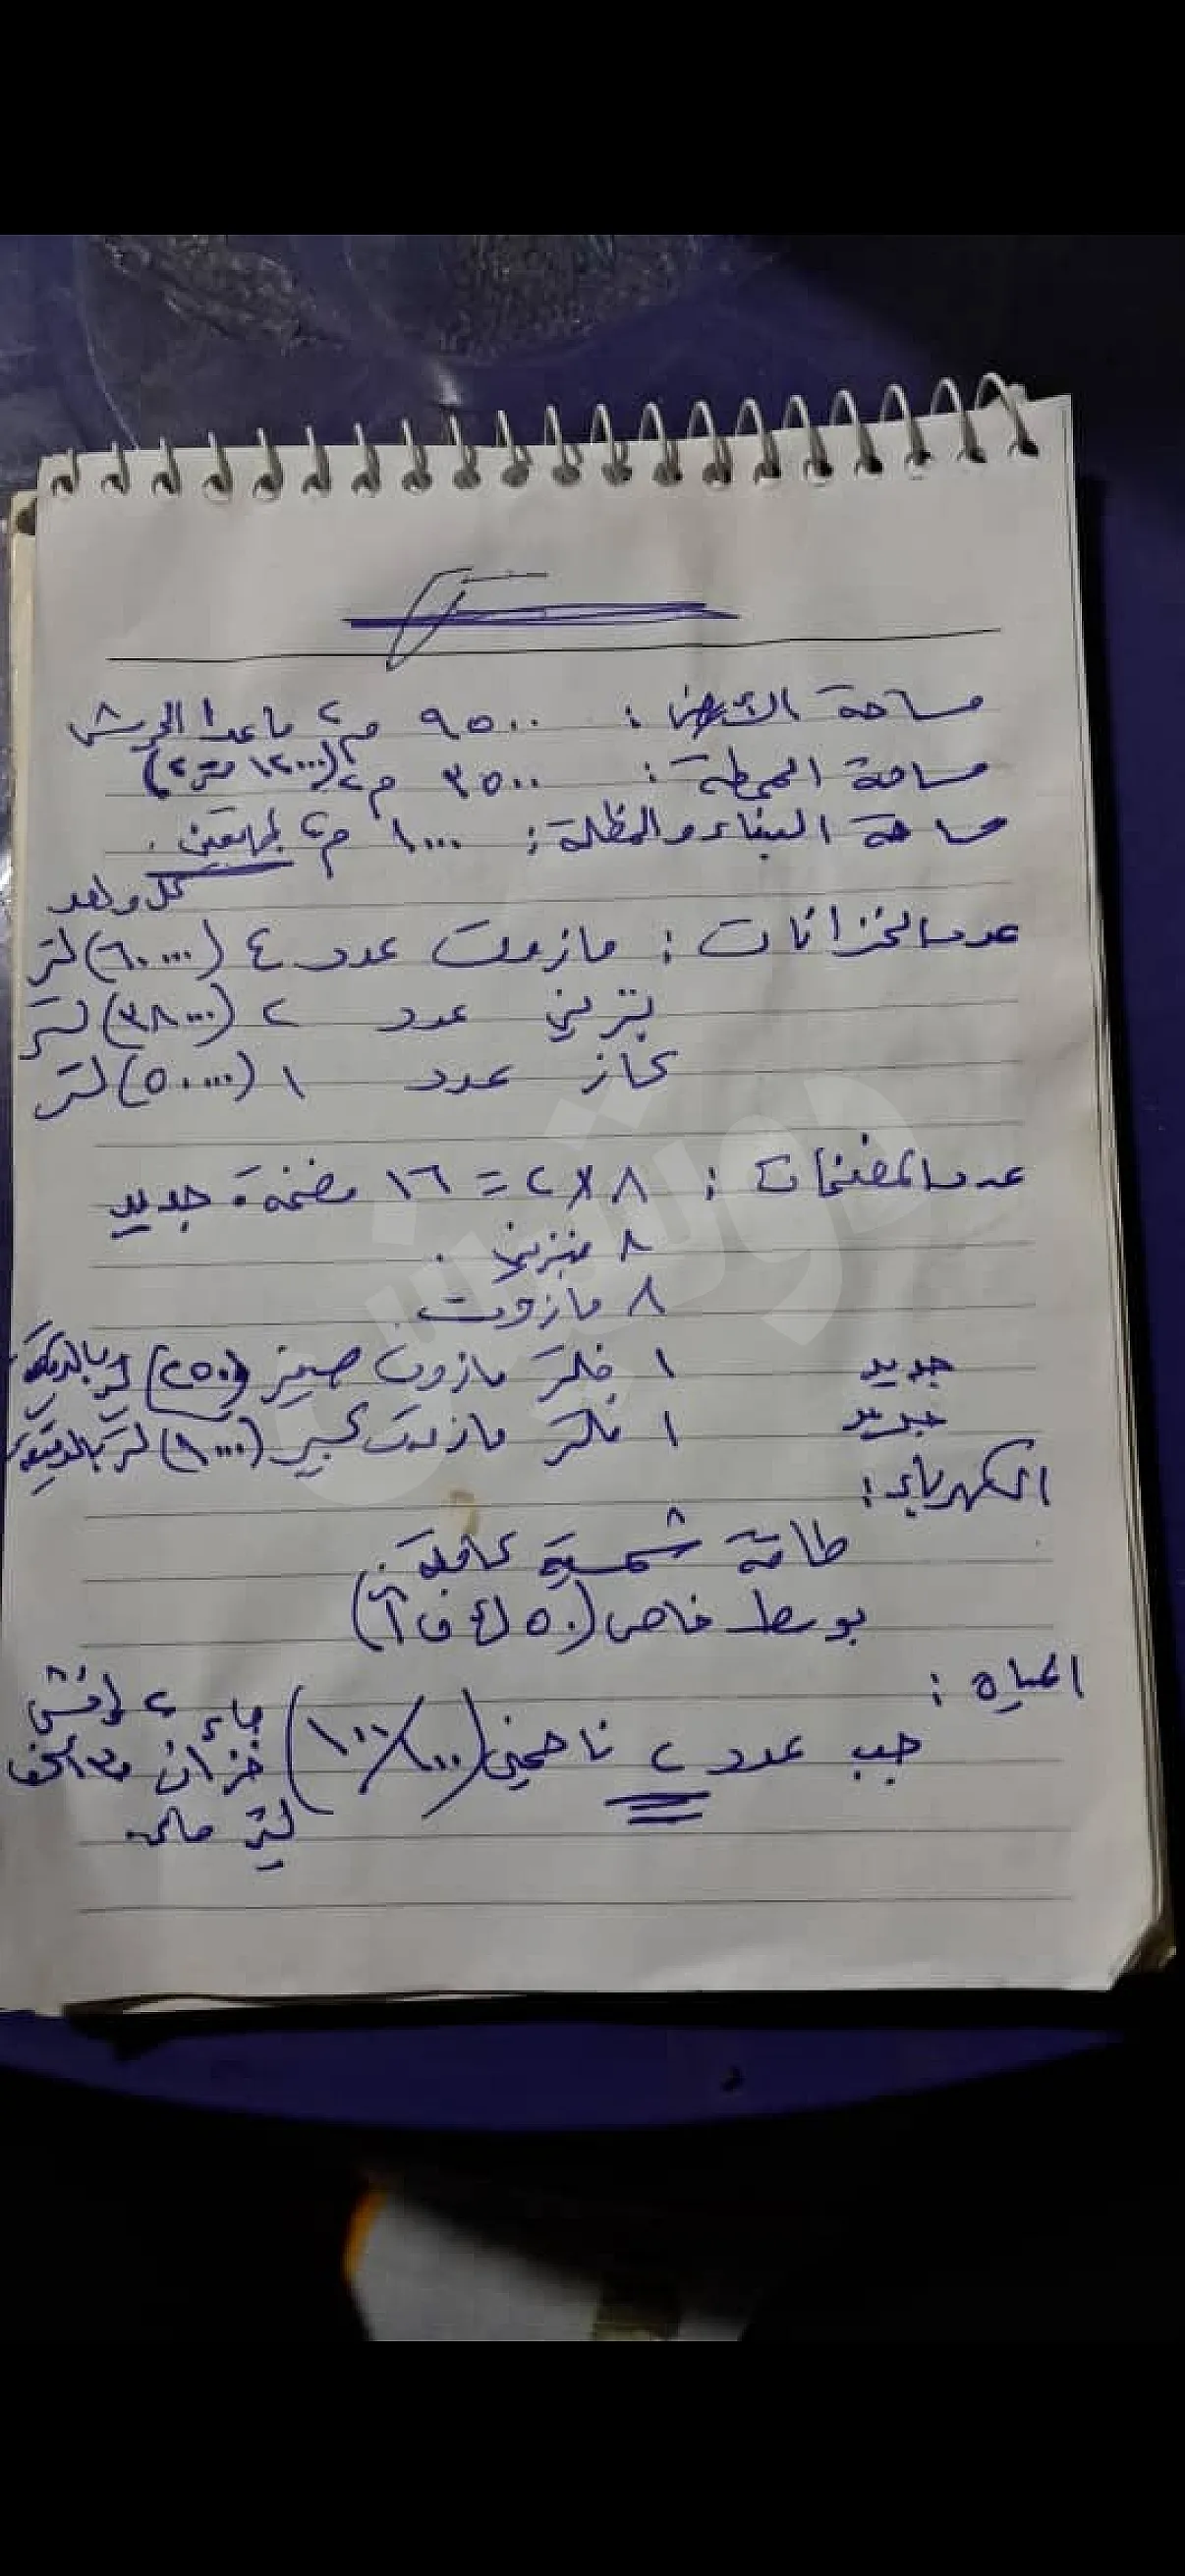 مساحة الأرض : ٩٥٠٠ م٢ ماعدا الحرش
(١٢٠٠٠ متر٢)
مساحة المحطة : ٣٥٠٠ م٢
مساحة البناء والمظلة : ١٠٠٠ م٢
كل واحد
عدد الخزانات : مازوت عدد ٤ (٦٠٠٠٠) لتر
بنزين عدد ٢ (٣٨٠٠٠) لتر
كاز عدد ١ (٥٠٠٠٠) لتر
عدد المضخات : ٨ × ٢ = ١٦ مضخة جديد
٨ بنزين .
٨ مازوت .
جديد ١ فلتر مازوت صغير (٢٥٠) لتر بالدقيقة
جديد ١ فلتر مازوت كبير (١٠٠٠) لتر بالدقيقة
الكهرباء :
طاقة شمسية كاملة .
بوسط خاص (٥٠ ك ف أ)
المياه :
جب عدد ٢ ناحمني (١٠٠/١٠٠٠)
خزان
لتر
دوبيزل